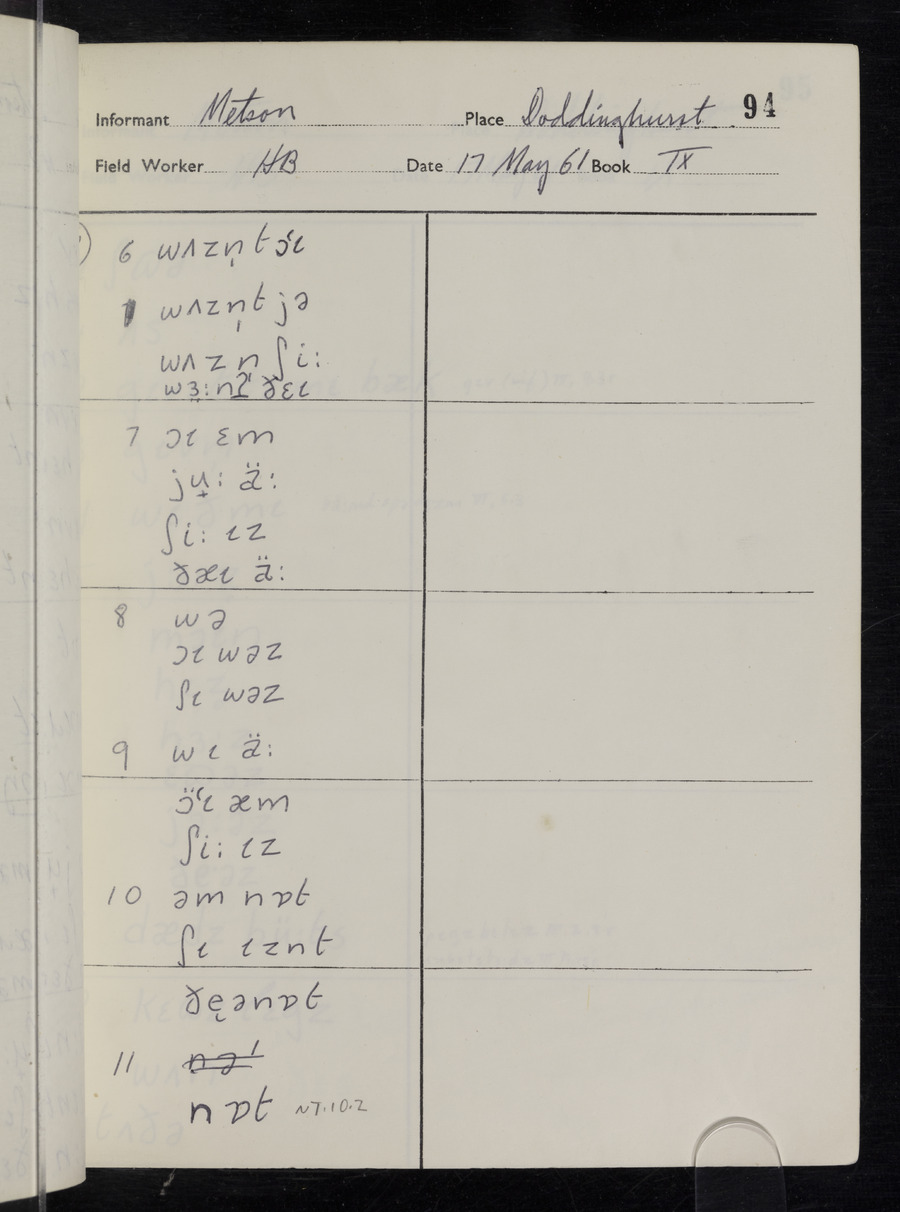 Informant Metson Place Doddinghurst 94
Field Worker HB Date 17 May 61 Book IX
6 wʌzn̩t ɔ̈ɩ
wʌzn̩t jə
wʌzn ʃi:
7 ɔɩ ɛm
jʉ̟: ä:
ʃi: ɩz
ðæɩ ä:
8 wə
ɔɩ wəz
ʃɩ wəz
9 wɩ ä:
ɔ̈ɩ æm
ʃi: ɩz
10 əm nɒt
ʃɩ ɩznt
ðe̞ənɒt
11 nə
nɒt